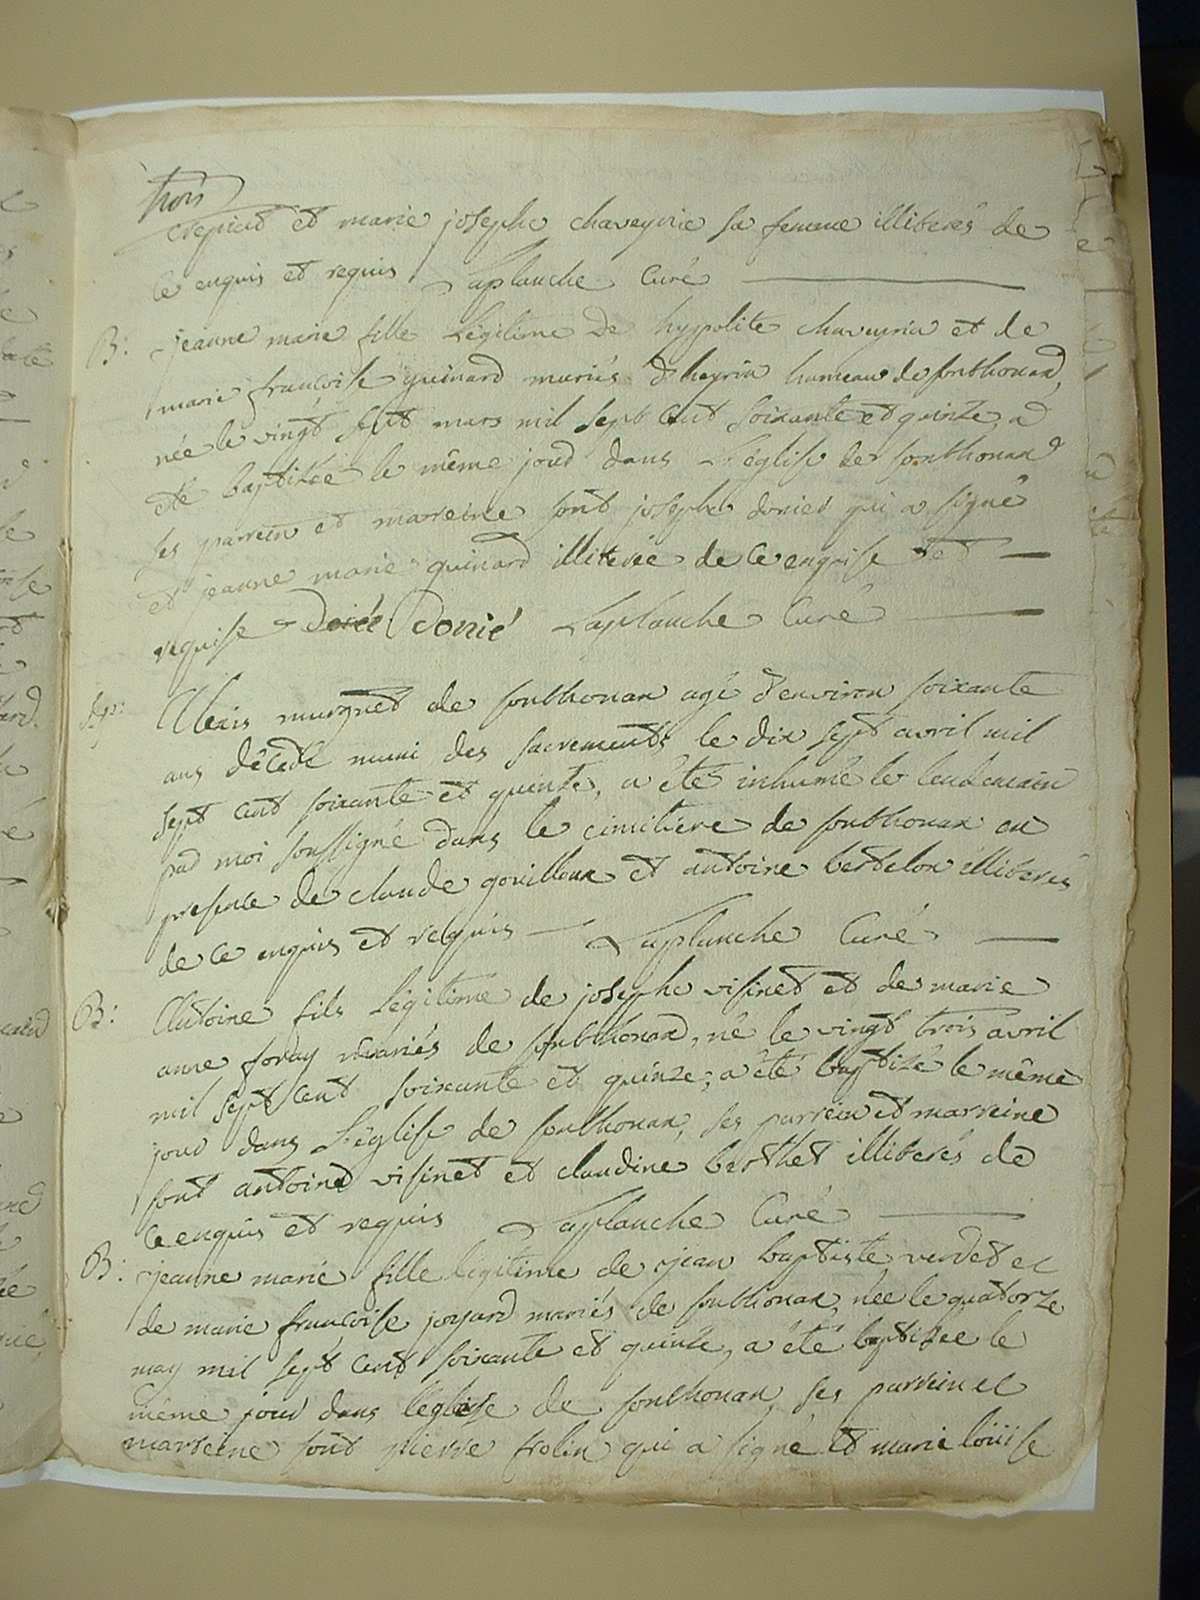 trois
crepict et marie josephe chaveyrie sa femme illiberés de
ce enquis et requis Laplanche Curé
B: jeanne marie fille Légitime de hyppolite chaveyria et de
marie françoise guinard mariés d'heyria hameau de sonthonax,
née le vingt sept mars mil sept cent soixante et quinze, a
été baptisée le même jour dans L'église de sonthonax
ses parrein et marreine sont joseph donier qui a signé
et jeanne marie guinard illiterée de ce enquise et
requise donié Laplanche Curé
Sep: Alexis murgnet de sonthonax agé d'environ soixante
ans décédé muni des sacrements le dix sept avril mil
sept cent soixante et quinze, a été inhumé le lendemain
par moi soussigné dans le cimitière de sonthonax en
presence de claude gouilloux et antoine bertelon illiberés
de ce enquis et requis Laplanche Curé
B: Antoine fils Légitime de josephe visinet et de marie
anne foray mariés de sonthonax, né le vingt trois avril
mil sept cent soixante et quinze, a été baptizé le même
jour dans L'église de sonthonax, ses parrein et marreine
sont antoine visinet et claudine berthet illiberés de
ce enquis et requis Laplanche Curé
B: jeanne marie fille legitime de jean baptiste verdet et
de marie françoise joyard mariés de sonthonax, née le quatorze
may mil sept cent soixante et quinze, a été baptisée le
même jour dans l'eglise de sonthonax, ses parrein et
marreine sont pierre frolin qui a signé et marie loüise